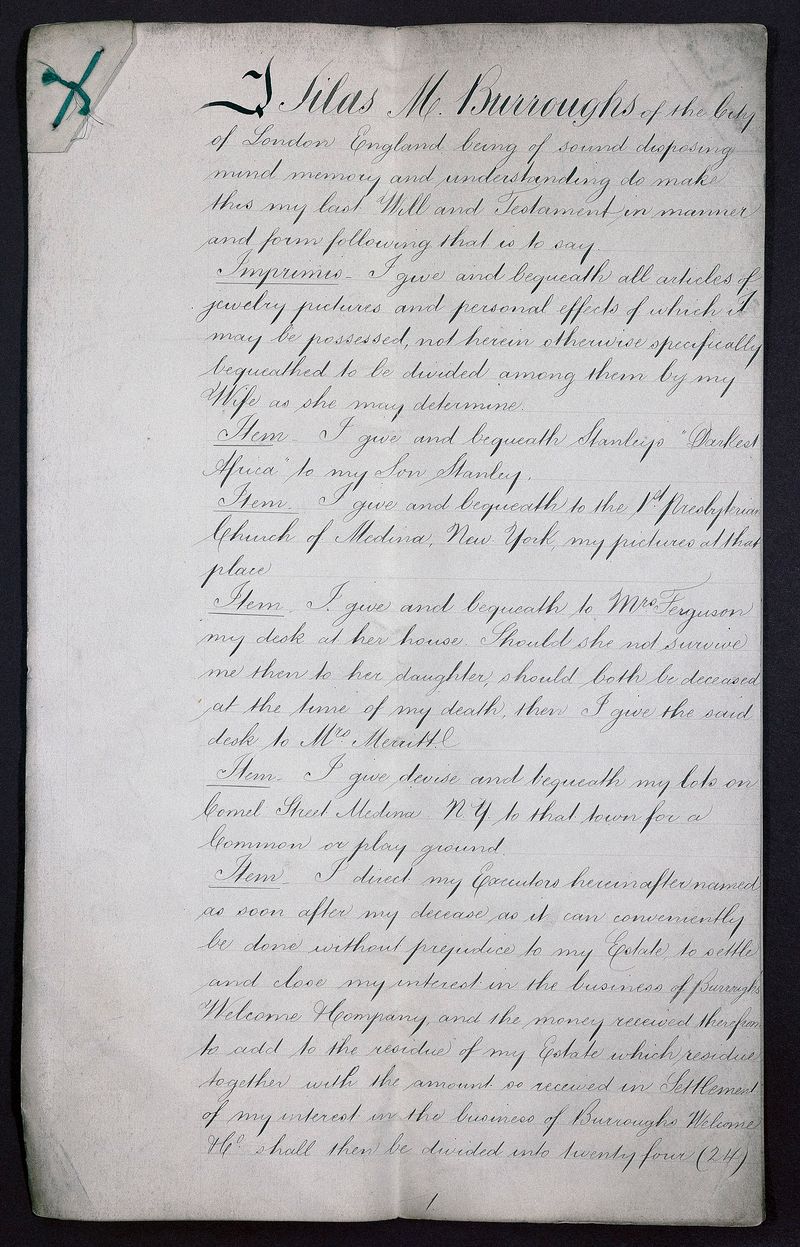 I Silas M. Burroughs of the City
of London England being of sound disposing
mind memory and understanding do make
this my last Will and Testament in manner
and form following that is to say.
Imprimis - I give and bequeath all articles of
jewelry pictures and personal effects of which I
may be possessed, not herein otherwise specifically
bequeathed to be divided among them by my
Wife as she may determine.
Item - I give and bequeath Stanley's "Darkest
Africa" to my Son Stanley.
Item. I give and bequeath to the 1st Presbyterian
Church of Medina, New York, my pictures at that
place
Item. I give and bequeath to Mrs Ferguson
my desk at her house. Should she not survive
me then to her daughter, should both be deceased
at the time of my death, then I give the said
desk to Mrs Merritt.
Item - I give devise and bequeath my lots on
Street Medina N.Y. to that town for a
Common or play ground
Item - I direct my Executors hereinafter named
as soon after my decease as it can conveniently
be done without prejudice to my Estate to settle
and close my interest in the business of Burroughs
Welcome & Company, and the money received therefrom
to add to the residue of my Estate which residue
together with the amount so received in Settlement
of my interest in the business of Burroughs Welcome
& Co. shall then be divided into twenty four (24)
1